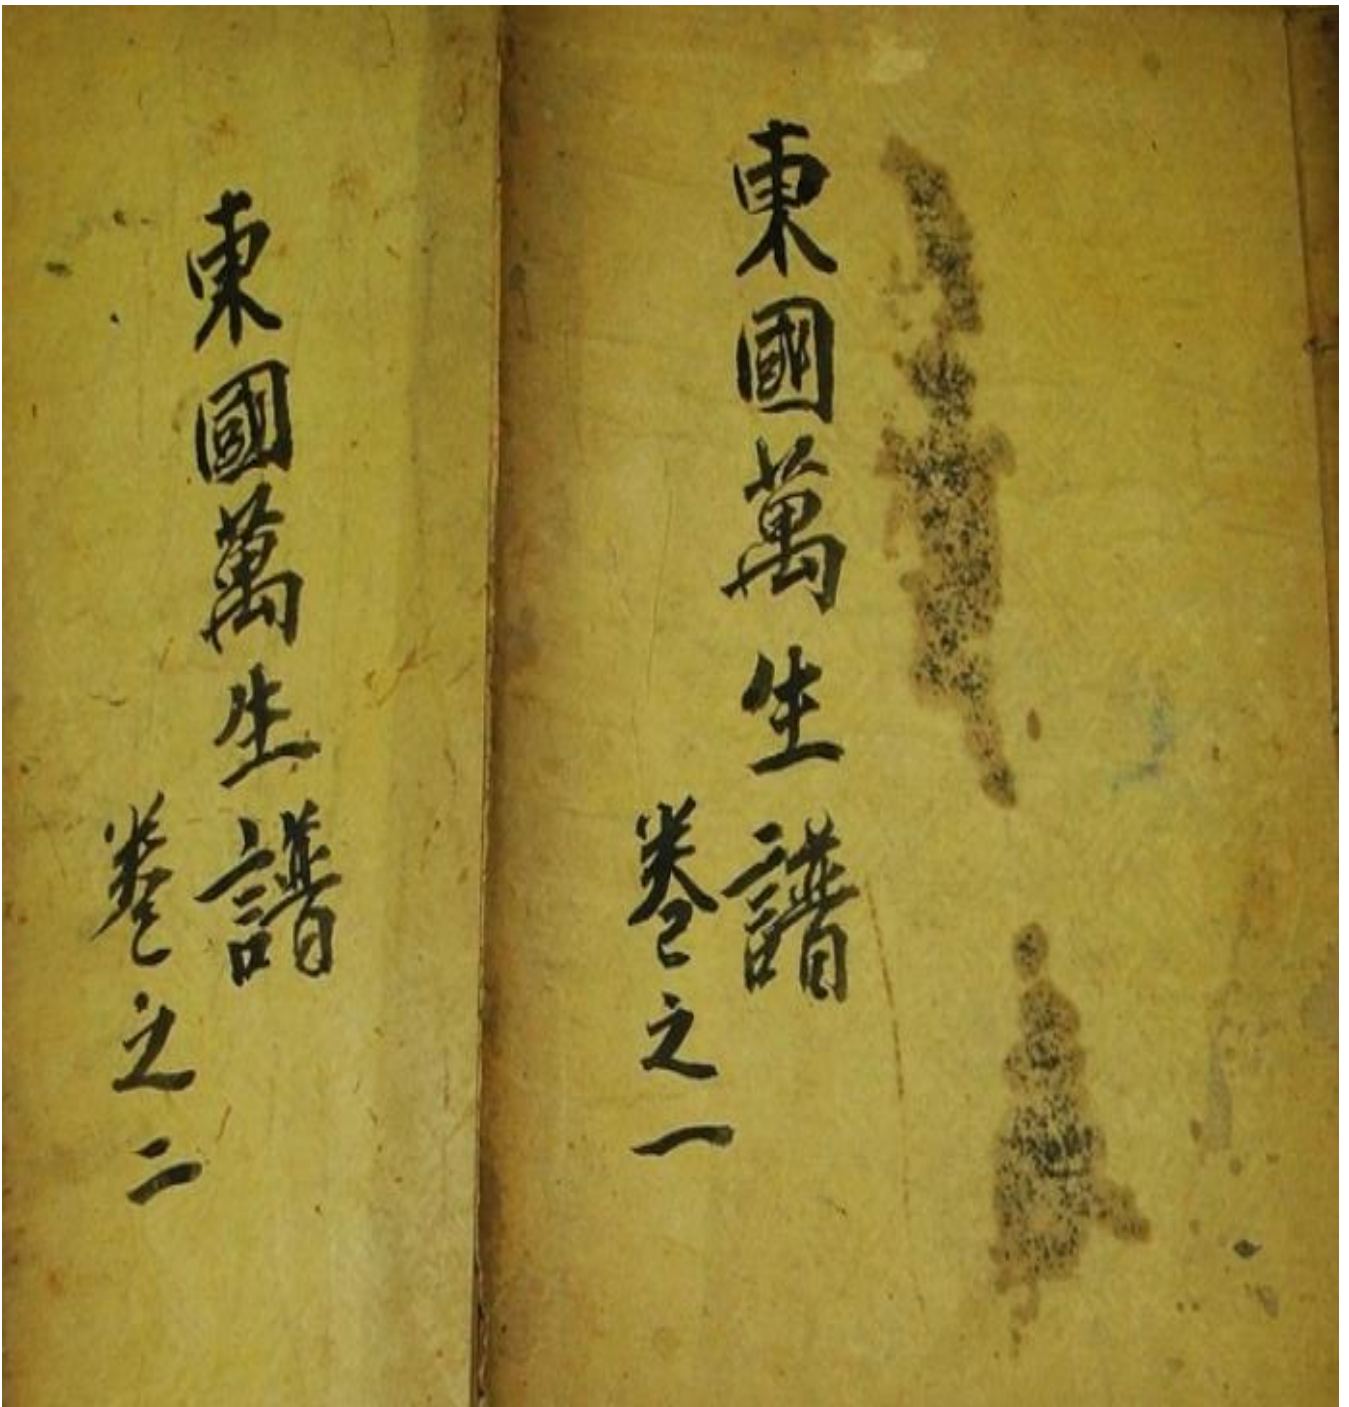 東國萬生譜
卷之一
東國萬生譜
卷之二